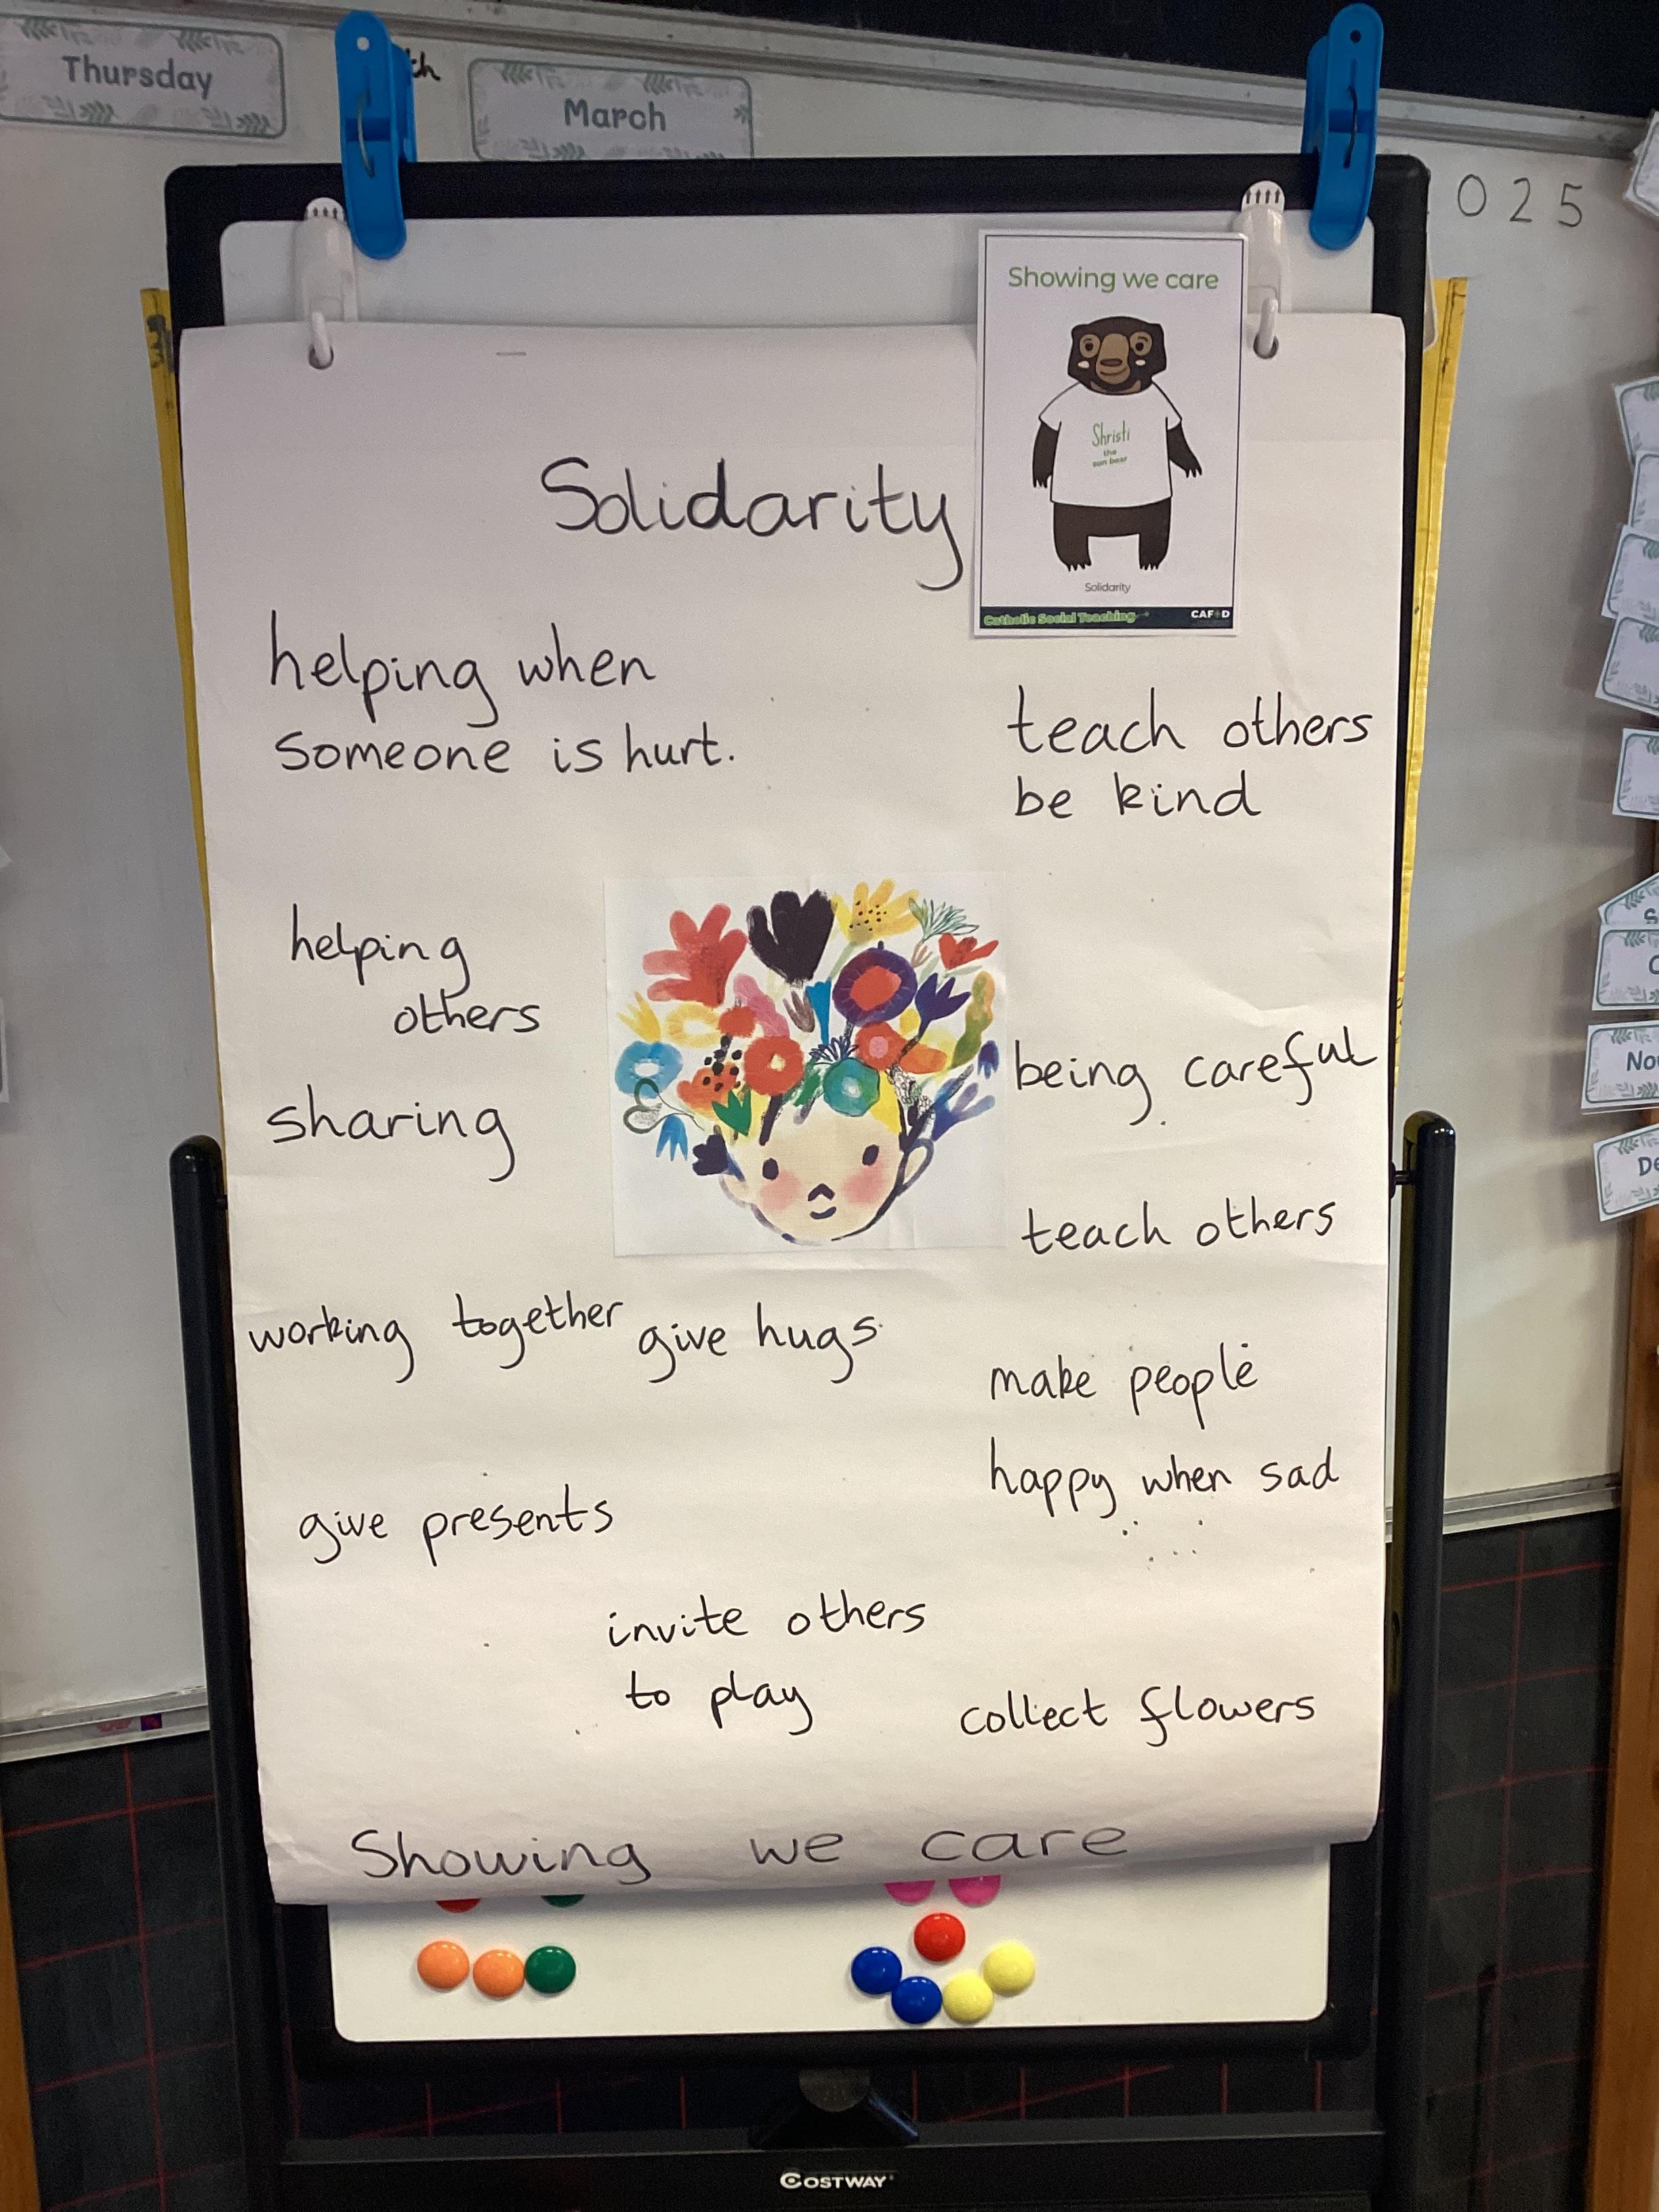 Thursday
th
March
025
Showing we care
Shristi
the
sun bear
Solidarity
Catholic Social Teaching
CAFOD
Solidarity
helping when
someone is hurt.
teach others
be kind
helping
others
being careful
sharing
teach others
working together
give hugs
make people
happy when sad
give presents
invite others
to play
collect flowers
Showing we care
No
De
COSTWAY